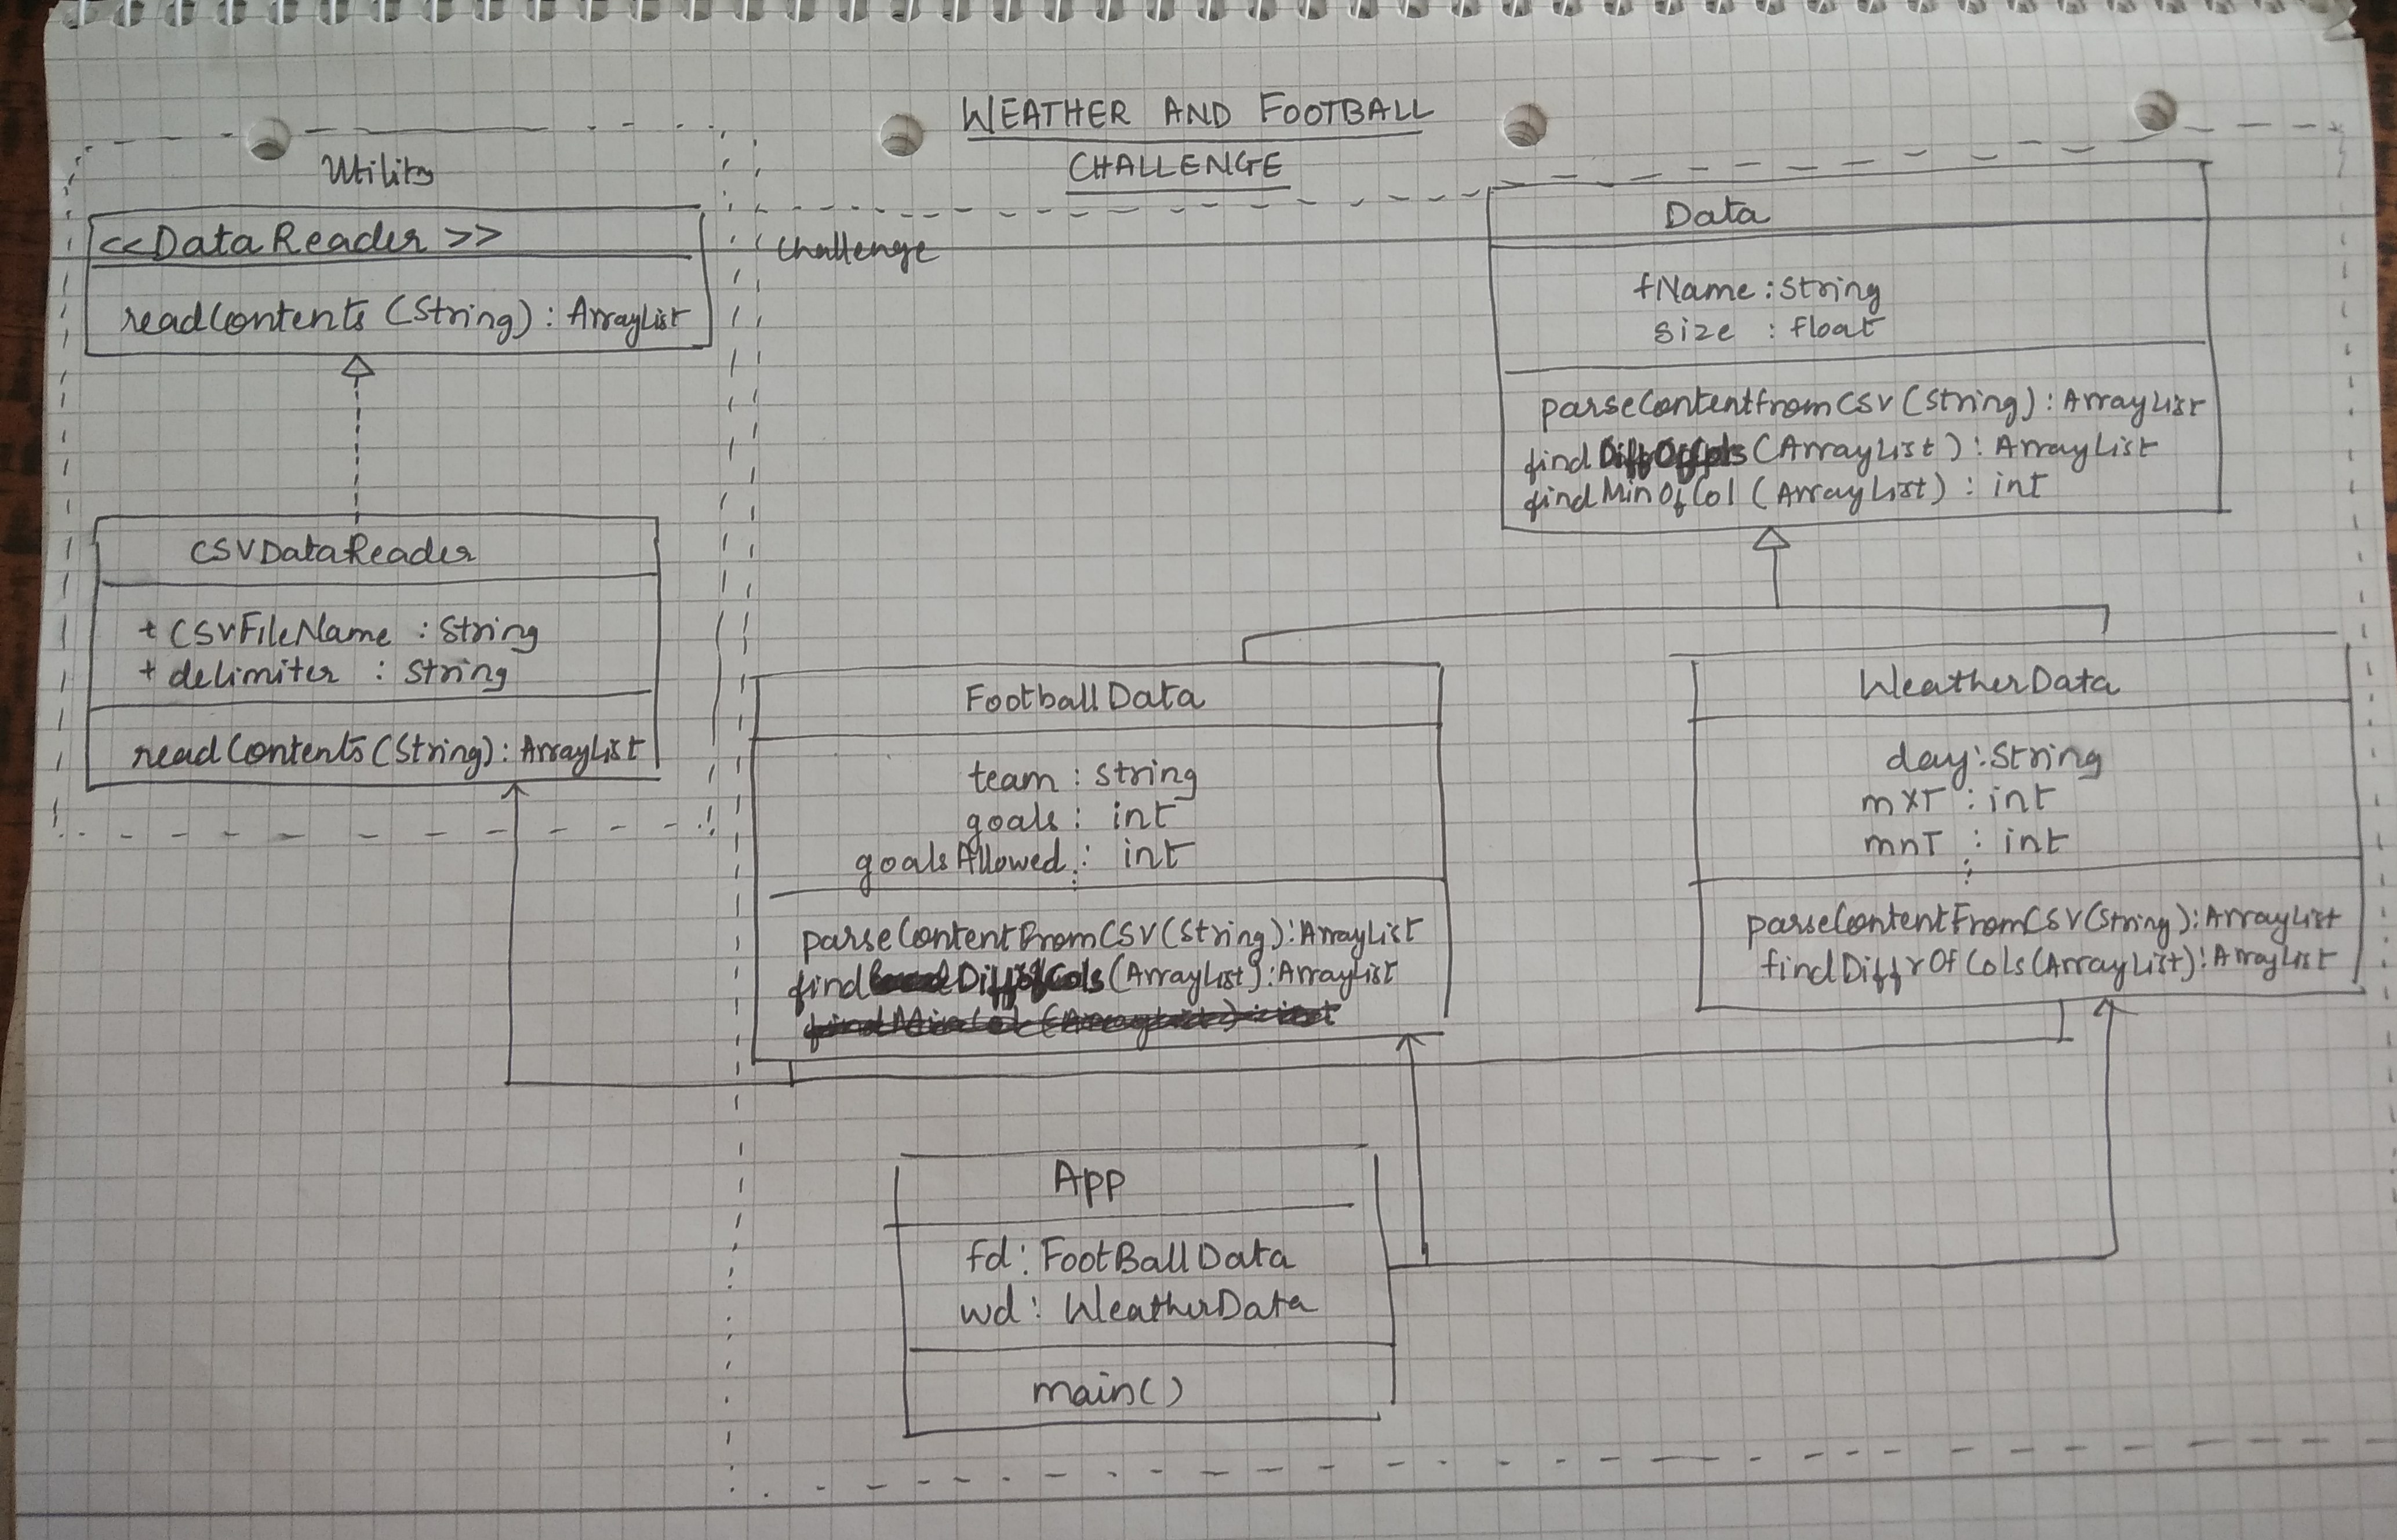 WEATHER AND FOOTBALL
CHALLENGE
Utility
<<DataReader>>
readContents (String) : ArrayList
CSVDataReader
+ CSVFileName : String
+ delimiter : String
readContents (String) : ArrayList
Challenge
Data
fName : String
size : float
parseContentfromCSV (String) : ArrayList
find DiffOfCols (ArrayList) : ArrayList
findMinOfCol (ArrayList) : int
FootballData
team : String
goals : int
goalsAllowed : int
parseContentFromCSV (String) : ArrayList
find DiffOfCols (ArrayList) : ArrayList
findMinCol (ArrayList) : int
WeatherData
day : String
mxT : int
mnT : int
parseContentFromCSV (String) : ArrayList
findDiffrOfCols (ArrayList) : ArrayList
App
fd : FootBallData
wd : WeatherData
main()